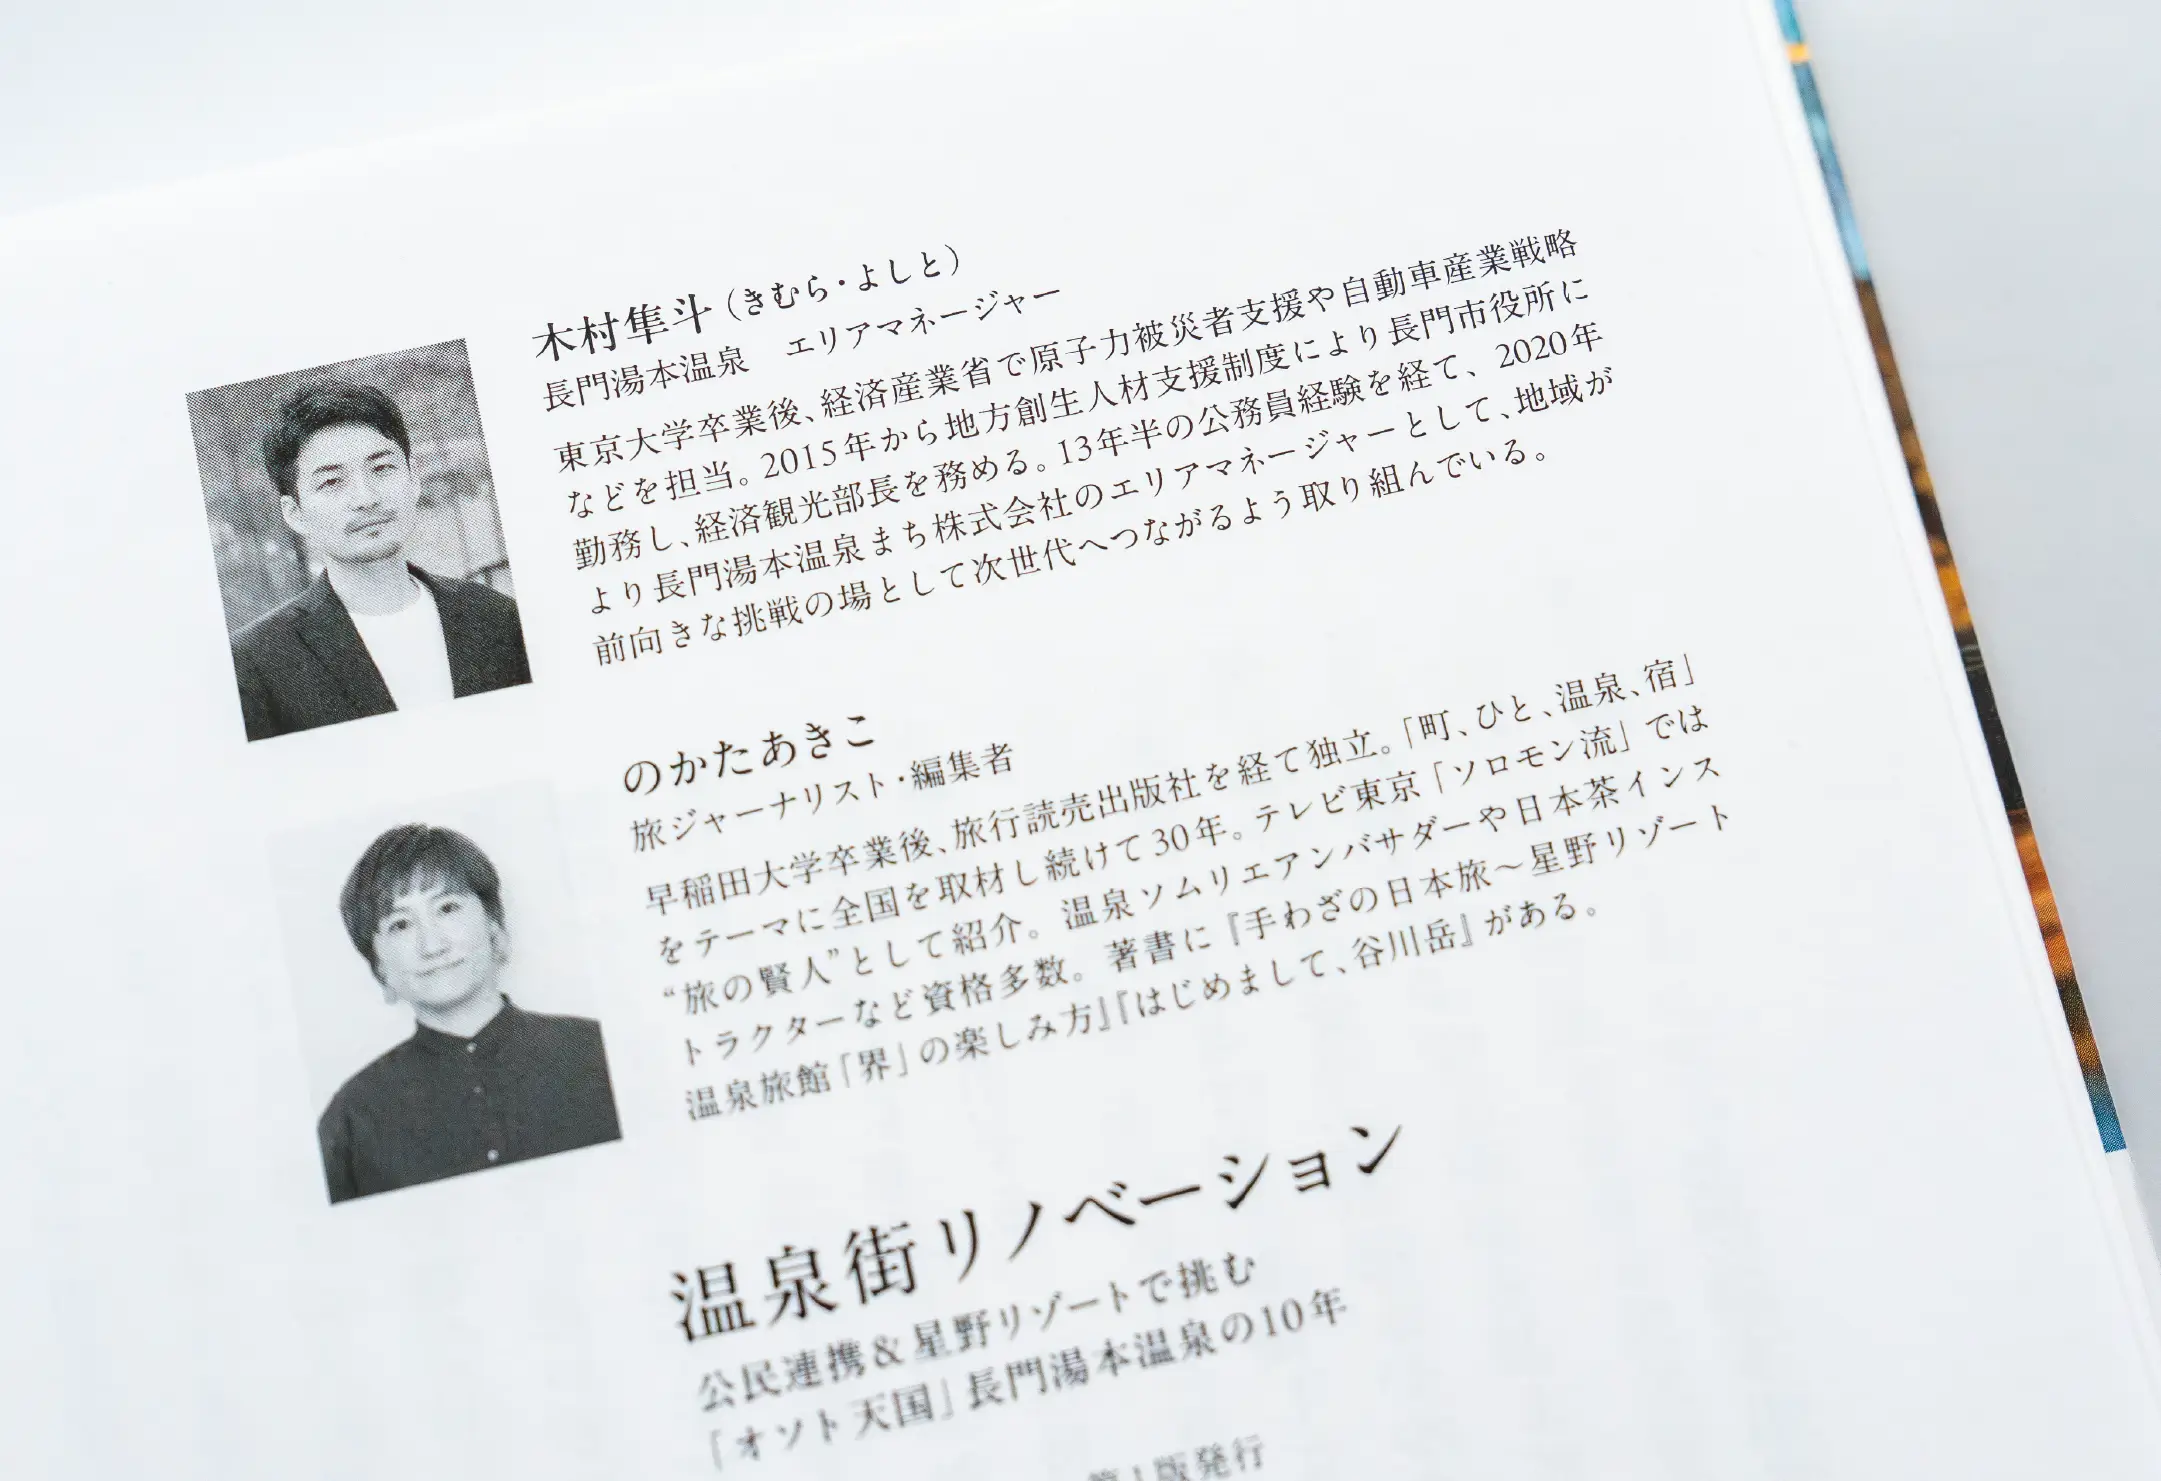 木村隼斗（きむら・よしと）
長門湯本温泉　エリアマネージャー
東京大学卒業後、経済産業省で原子力被災者支援や自動車産業戦略
などを担当。2015年から地方創生人材支援制度により長門市役所に
勤務し、経済観光部長を務める。13年半の公務員経験を経て、2020年
より長門湯本温泉まち株式会社のエリアマネージャーとして、地域が
前向きな挑戦の場として次世代へつながるよう取り組んでいる。
のかたあきこ
旅ジャーナリスト・編集者
早稲田大学卒業後、旅行読売出版社を経て独立。「町、ひと、温泉、宿」
をテーマに全国を取材し続けて30年。テレビ東京「ソロモン流」では
“旅の賢人”として紹介。温泉ソムリエアンバサダーや日本茶インス
トラクターなど資格多数。著書に『手わざの日本旅～星野リゾート
温泉旅館「界」の楽しみ方』『はじめまして、谷川岳』がある。
温泉街リノベーション
公民連携＆星野リゾートで挑む
「オソト天国」長門湯本温泉の10年
第1版発行